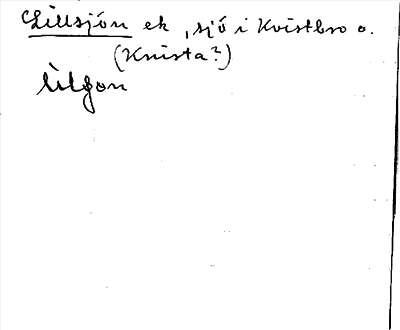 Lillsjön ek, sjö i Kvistbro o.
(Knista?)
lilgon